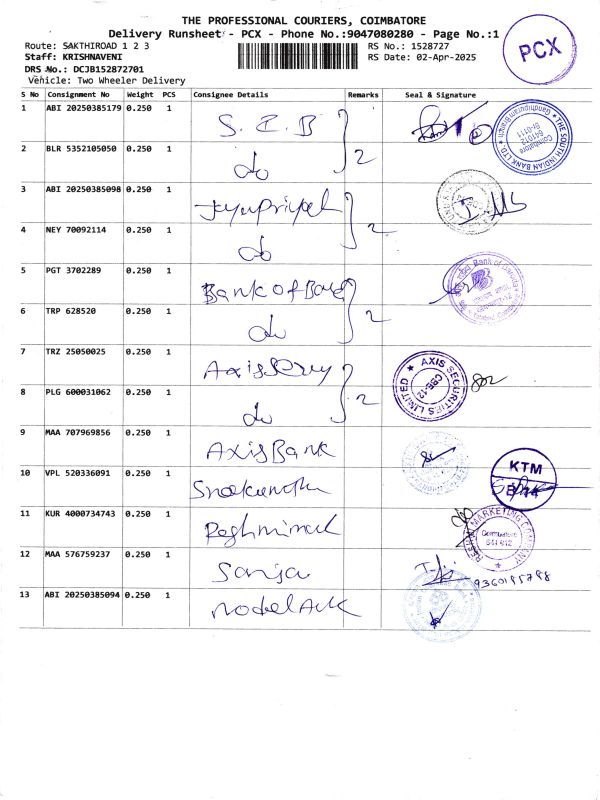 THE PROFESSIONAL COURIERS, COIMBATORE
Delivery Runsheet - PCX - Phone No.:9047080280 - Page No.:1
Route: SAKTHIROAD 1 2 3
Staff: KRISHNAVENI
DRS No.: DCJB152872701
Vehicle: Two Wheeler Delivery
RS No.: 1528727
RS Date: 02-Apr-2025
PCX
S No Consignment No Weight PCS Consignee Details Remarks Seal & Signature
1 ABI 20250385179 0.250 1 S.I.B
THE SOUTH INDIAN BANK LTD.
Gandhipuram Branch
Coimbatore
641012
2 BLR 5352105050 0.250 1 do 2
3 ABI 20250385098 0.250 1
4 NEY 70092114 0.250 1 do 2
5 PGT 3702289 0.250 1 Bank of
Bank of Baroda
6 TRP 628520 0.250 1 do 2
7 TRZ 25050025 0.250 1 Axis
AXIS SECURITIES LIMITED
CBE-12
8 PLG 600031062 0.250 1 do 2
9 MAA 707969856 0.250 1 Axis Bank
10 VPL 520336091 0.250 1
KTM
11 KUR 4000734743 0.250 1
MARKETING COMPANY
Coimbatore
641 012
12 MAA 576759237 0.250 1 Sanja
9360195798
13 ABI 20250385094 0.250 1